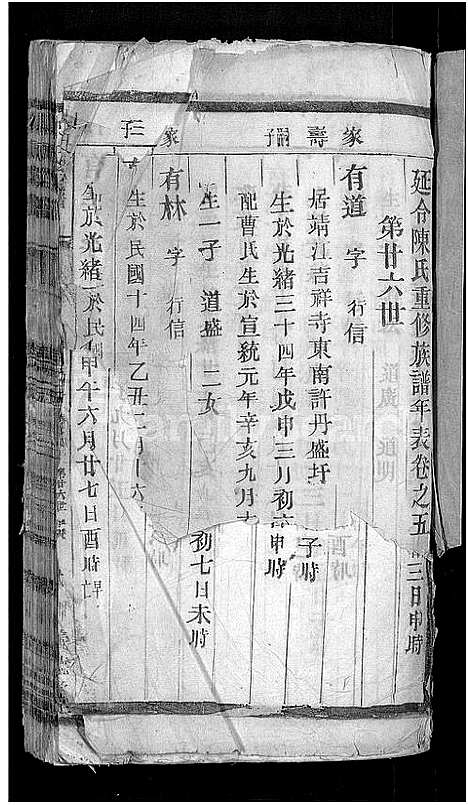 延令陳氏重修族譜年表卷之五
三日申時
第廿六世
家壽嗣子
有道 字 行信
居靖江吉祥寺東南許丹盛圩
子時
生於光緒三十四年戊申三月初
申時
配曹氏生於宣統元年辛亥九月
生一子 道盛 二女
初七日未時
家 三子
有林 字 行信
生於民國十四年乙丑二月十六
生於光緒 於民 甲午六月廿七日酉時